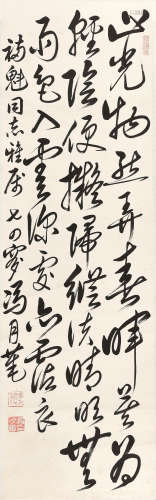 山光物態弄春暉莫為
輕陰便擬歸縱使晴明無
雨色入雲深處亦霑衣
詩魁同志雅屬 七四叟馮月菴